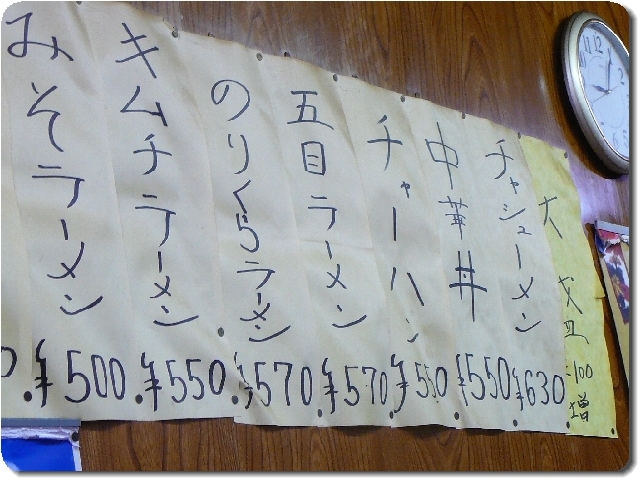 大盛 100増
チャシューメン ¥630
中華丼 ¥550
チャーハン ¥550
五目ラーメン ¥570
のりくらラーメン ¥570
キムチラーメン ¥550
みそラーメン ¥500